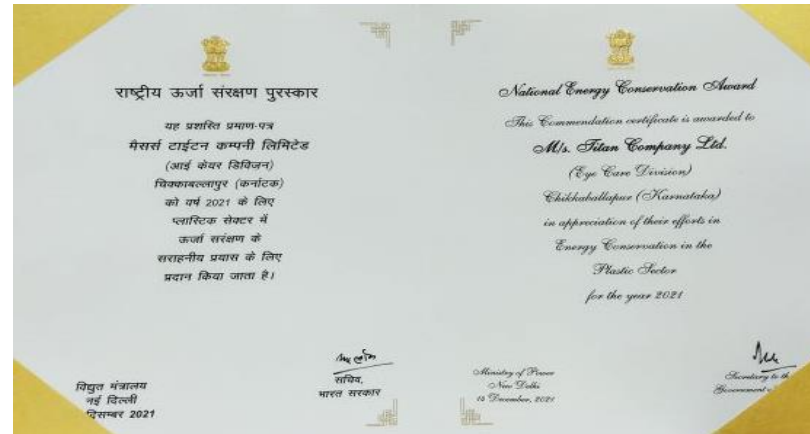 राष्ट्रीय ऊर्जा संरक्षण पुरस्कार
यह प्रशस्ति प्रमाण-पत्र
मैसर्स टाईटन कम्पनी लिमिटेड
(आई केयर डिविजन)
चिक्काबल्लापुर (कर्नाटक)
को वर्ष 2021 के लिए
प्लास्टिक सेक्टर में
ऊर्जा सरंक्षण के
सराहनीय प्रयास के लिए
प्रदान किया जाता है।
सचिव,
भारत सरकार
विद्युत मंत्रालय
नई दिल्ली
दिसम्बर 2021
National Energy Conservation Award
This Commendation certificate is awarded to
M/s. Titan Company Ltd.
(Eye Care Division)
Chikkaballapur (Karnataka)
in appreciation of their efforts in
Energy Conservation in the
Plastic Sector
for the year 2021
Ministry of Power
New Delhi
14 December, 2021
Secretary to
Government